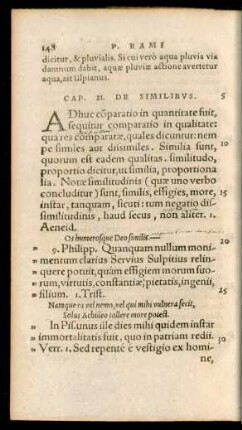 148 P. RAMI
dicitur, & pluvialis. Si cui verò aqua pluvia viæ
damnum dabit, aquæ pluviæ actione avertetur
aqua, ait Ulpianus.
CAP. II. DE SIMILIBVS. 5
ADhuc cõparatio in quantitate fuit,
sequitur comparatio in qualitate:
qua res comparatæ, quales dicuntur: nem
pe similes aut dissimiles. Similia sunt,
quorum est eadem qualitas. similitudo, 10
proportio dicitur, ut similia, proportiona
lia. Notæ similitudinis (quæ uno verbo
concluditur) sunt, similis, effigies, more,
instar, tanquam, sicuti: tum negatio dis- 15
similitudinis, haud secus, non aliter. 1.
Aeneid.
Os humerosque Deo similis
9. Philipp. Quanquam nullum moni- 20
mentum clarius Servius Sulpitius relin-
quere potuit, quàm effigiem morum suo-
rum, virtutis, constantiæ, pietatis, ingenii,
filium. 1. Trist.
Namque ea vel nemo, vel qui mihi vulnera fecit, 25
Solus Achilleo tollere more potest.
In Pis. unus ille dies mihi quidem instar
immortalitatis fuit, quo in patriam redii.
Verr. 1. Sed repentè è vestigio ex homi- 30
ne,